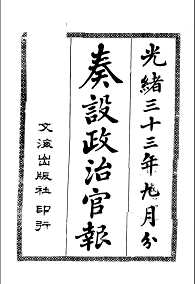 光緒三十三年九月分
奏設政治官報
文海出版社印行